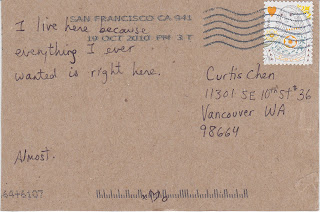 SAN FRANCISCO CA 941
19 OCT 2010 PM 3 T
I live here because
everything I ever
wanted is right here.
Almost.
Curtis Chen
11301 SE 10th St #36
Vancouver WA
98664
64+6107